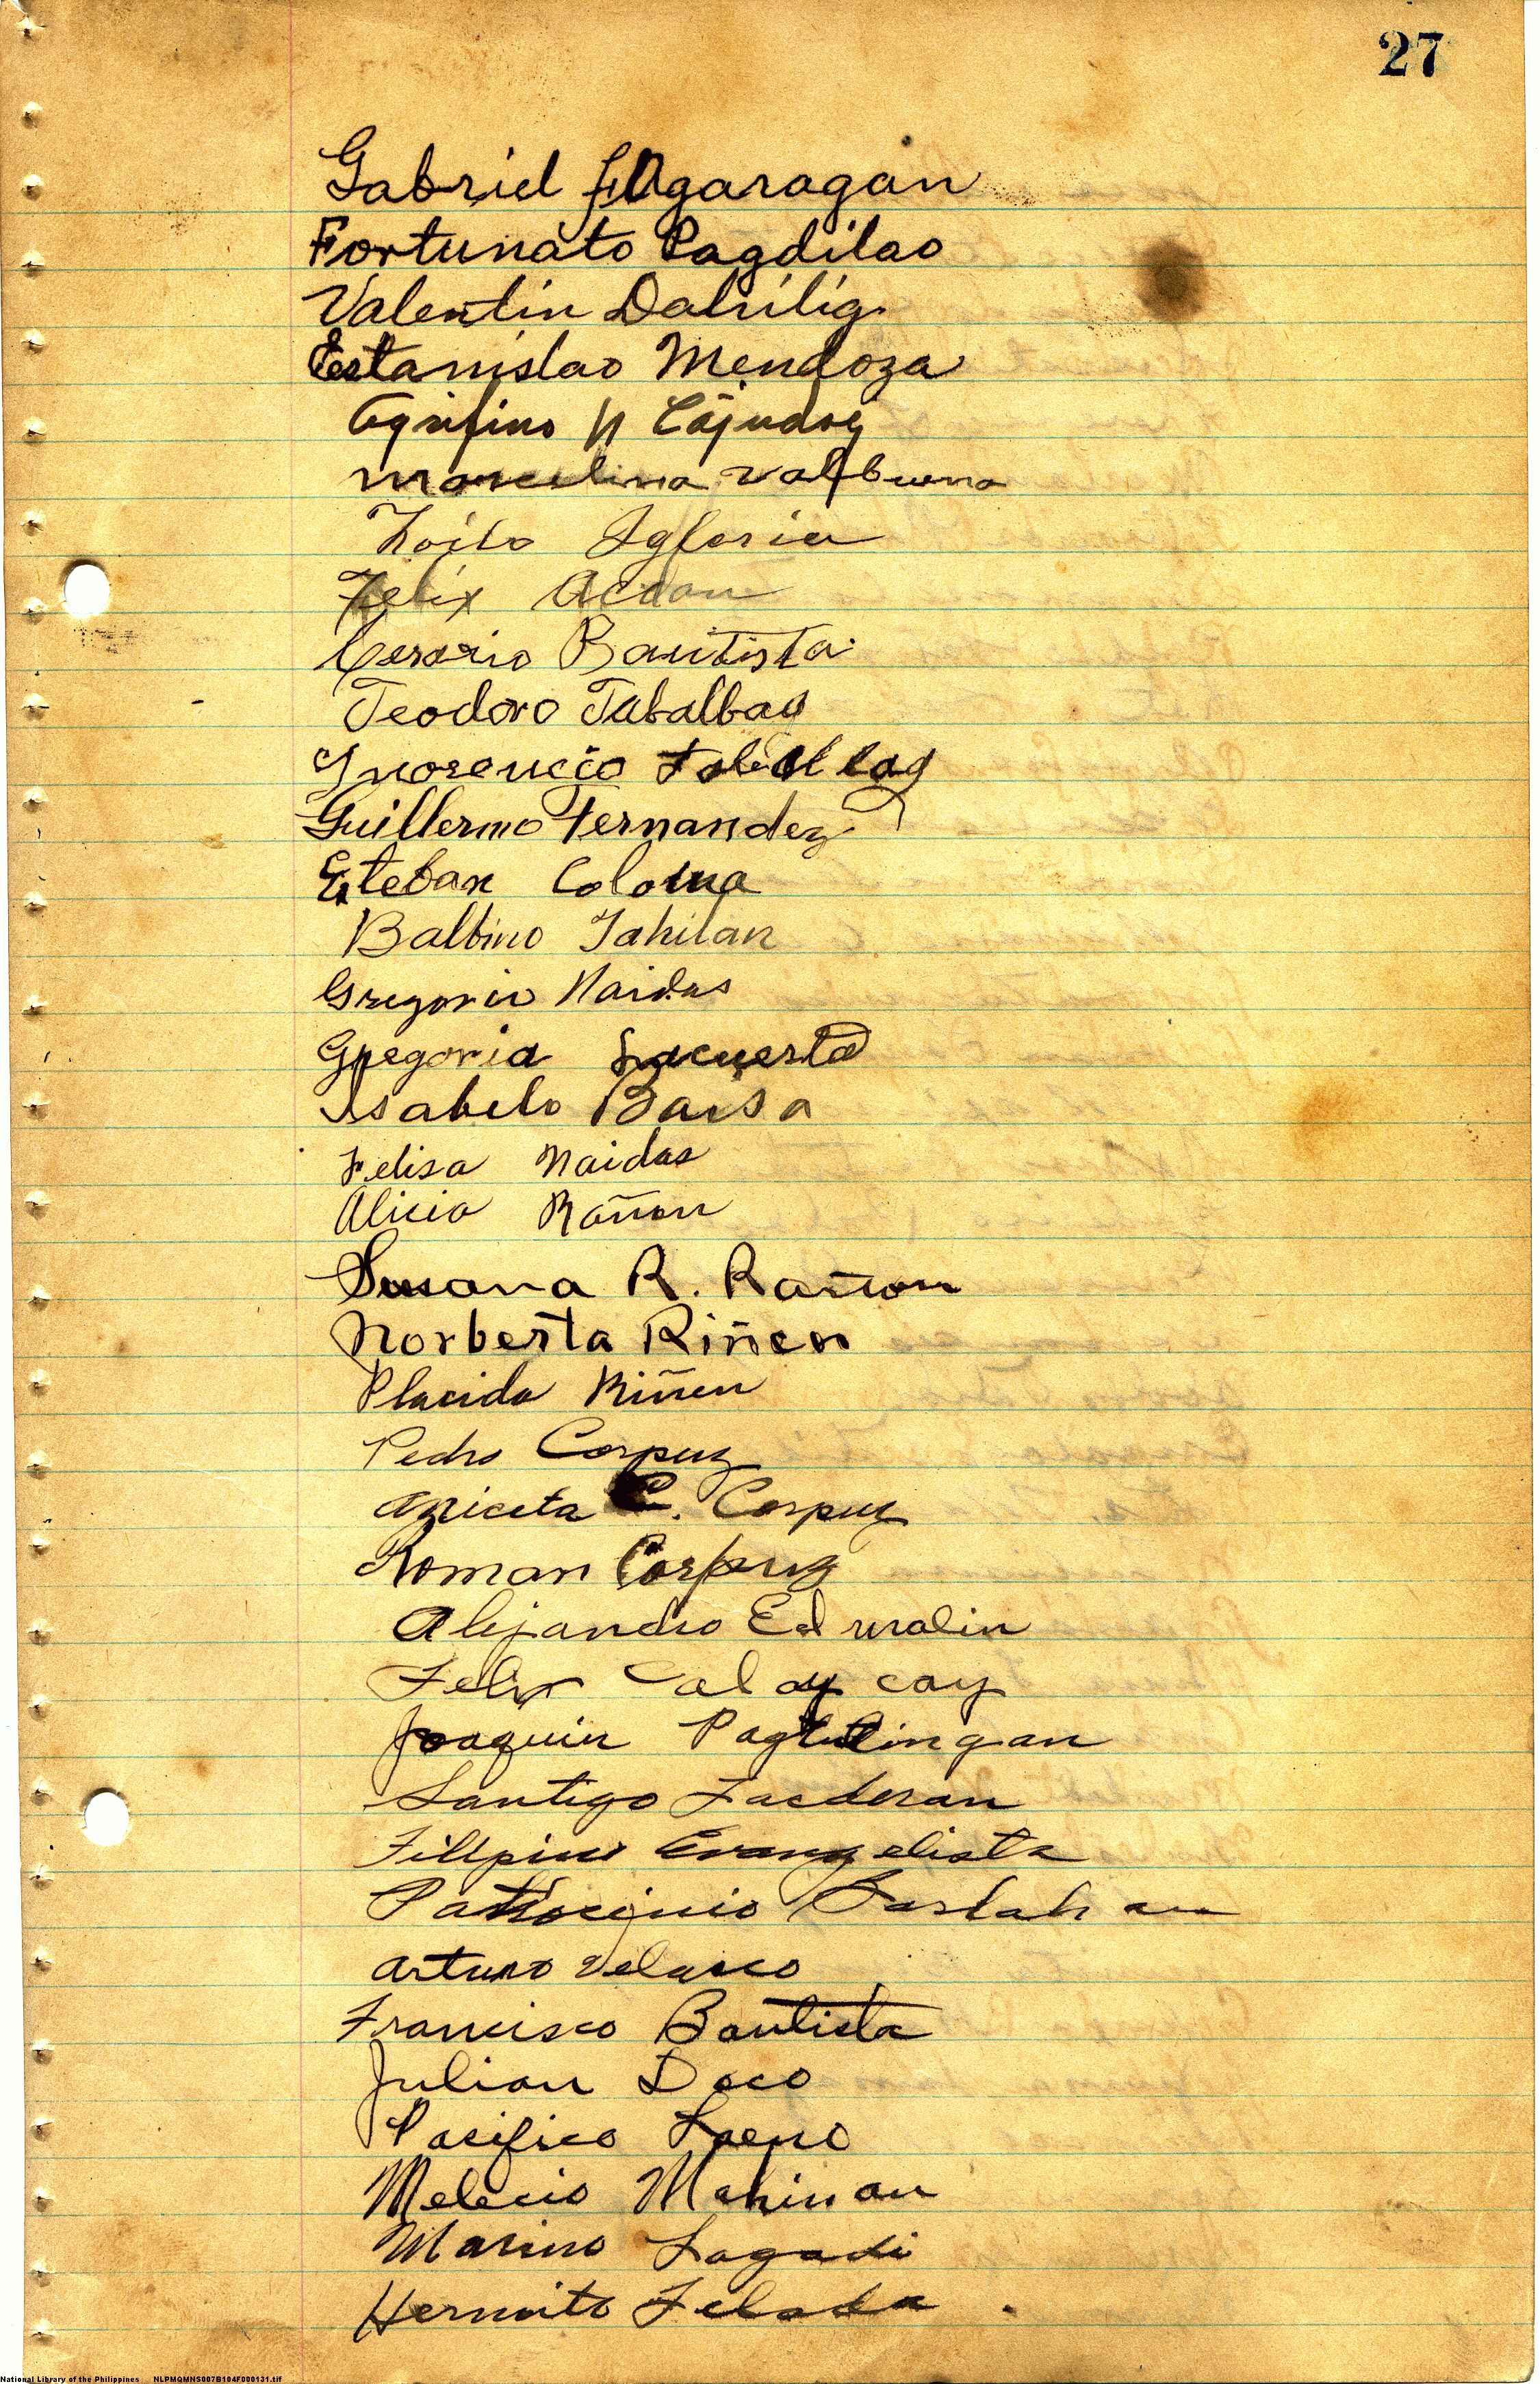 27
Gabriel Agaragan
Fortunato Pagdilao
Valentin Dalilig
Estanislao Mendoza
Agrifino N Cajudoy
Marcelina Valbuena
Zoilo Igloria
Felix Acdan
Cesario Bautista
Teodoro Tabalbag
Inosencio Tabalbag
Guillermo Fernandez
Esteban Coloma
Balbino Tahilan
Gregorio Naidas
Gregoria Lacuesta
Isabelo Baisa
Felisa Naidas
Alicia Rañon
Susana R. Rañon
Norberta Riñen
Placida Riñen
Pedro Corpuz
Aniceta C. Corpuz
Roman Corpuz
Alejandro Edralin
Felix Calaycay
Joaquin Pagtulingan
Santigo Lacderan
Filipino Evangelista
Patrocinio Baslahan
Arturo Velasco
Francisco Bautista
Julian Daco
Pacifico Laeno
Melecio Mahinan
Marino Lagadi
Hermito Felada
National Library of the Philippines NLPMQMNS007B104F000131.tif